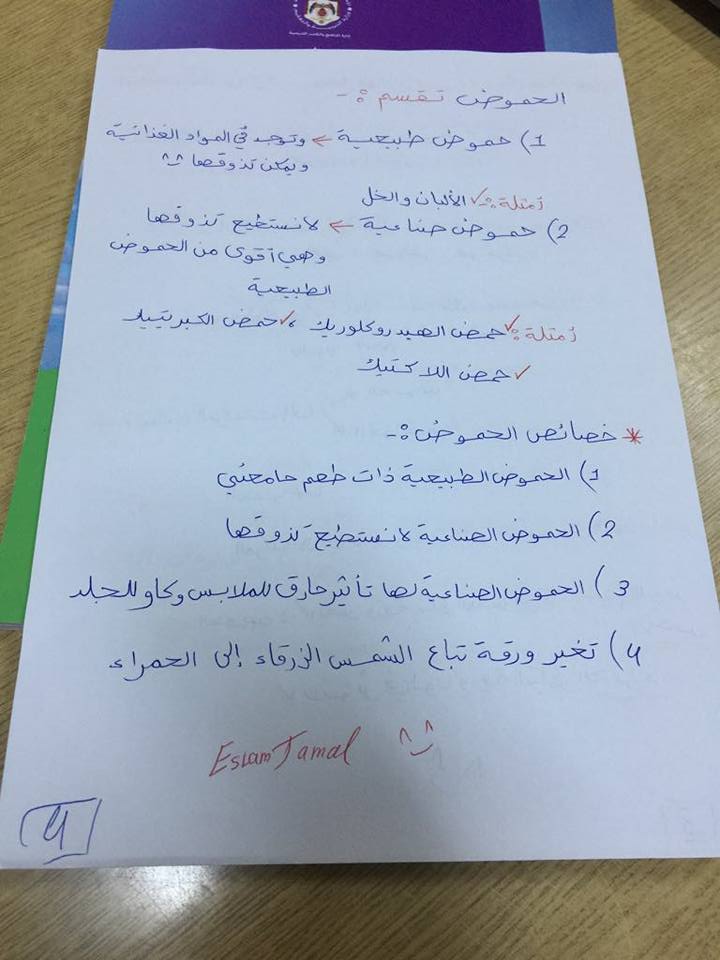 إدارة المناهج والكتب المدرسية
الحموض تقسم :-
1) حموض طبيعية ← وتوجد في المواد الغذائية
ويمكن تذوقها
أمثلة :- ✓ الألبان والخل
2) حموض صناعية ← لا نستطيع تذوقها
وهي أقوى من الحموض
الطبيعية
أمثلة : ✓ حمض الهيدروكلوريك ، ✓ حمض الكبريتيك
✓ حمض اللاكتيك
* خصائص الحموض :-
1) الحموض الطبيعية ذات طعم حامضي
2) الحموض الصناعية لا نستطيع تذوقها
3) الحموض الصناعية لها تأثير حارق للملابس وكاو للجلد
4) تغير ورقة تباع الشمس الزرقاء إلى الحمراء
Eslam Jamal ^^
4